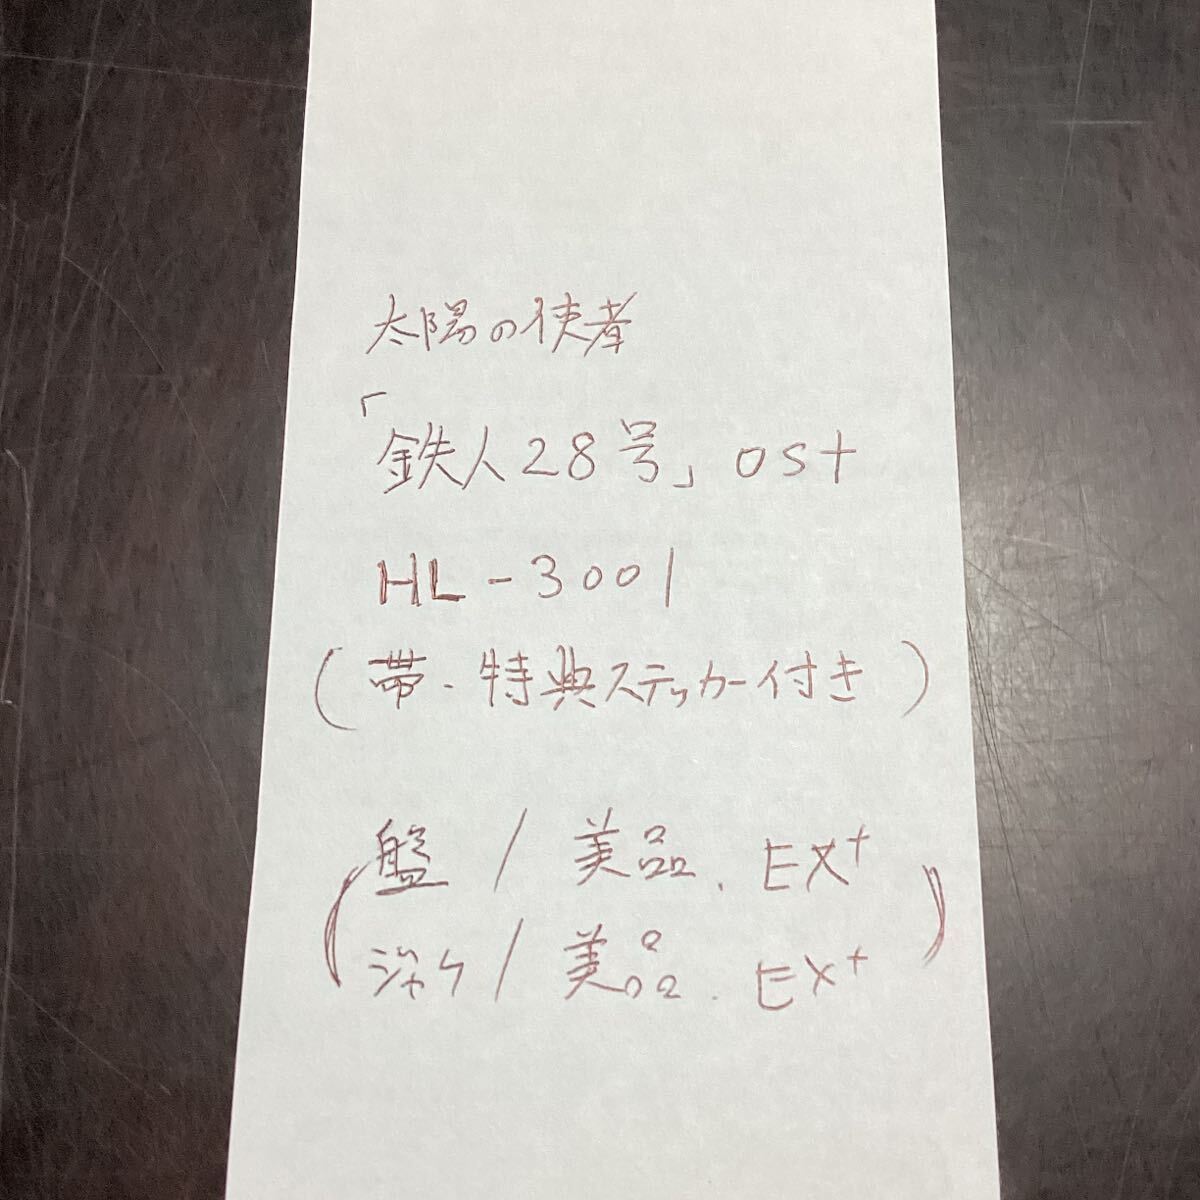 太陽の使者
「鉄人28号」ost
HL-3001
(帯・特典ステッカー付き)
(盤/美品.EX+
ジャケ/美品.EX+)